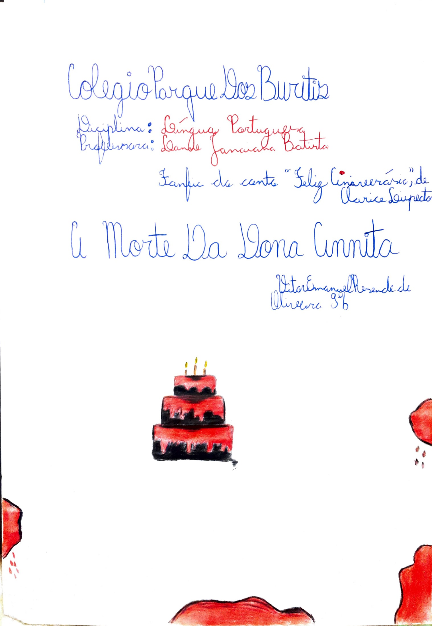 Colegio Parque Dos Buritis
Disciplina: Língua Portuguesa
Professora: Janaina Batista
Fanfic do conto "Feliz Aniversário", de
Clarice Lispector
A Morte Da Dona Annita
Vitor Emanuel Resende de
Oliveira 9ºb